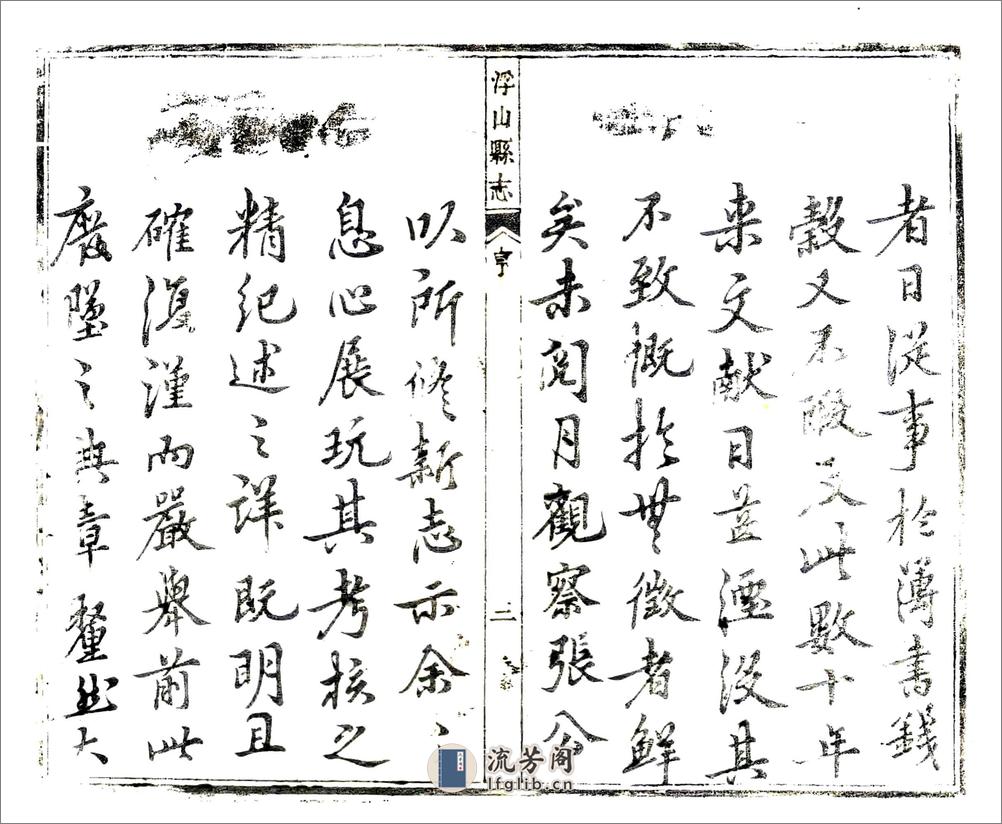 者日從事於簿書錢
穀又不暇及此數十年
来文献日益湮没其
不致慨於無徵者鮮
矣未閱月觀察張公
浮山縣志
序
二
以所修新志示余〻
息心展玩其考核之
精紀述之詳既明且
確復謹而嚴舉前此
廢墜之典章釐然大
流芳阁
lfglib.cn